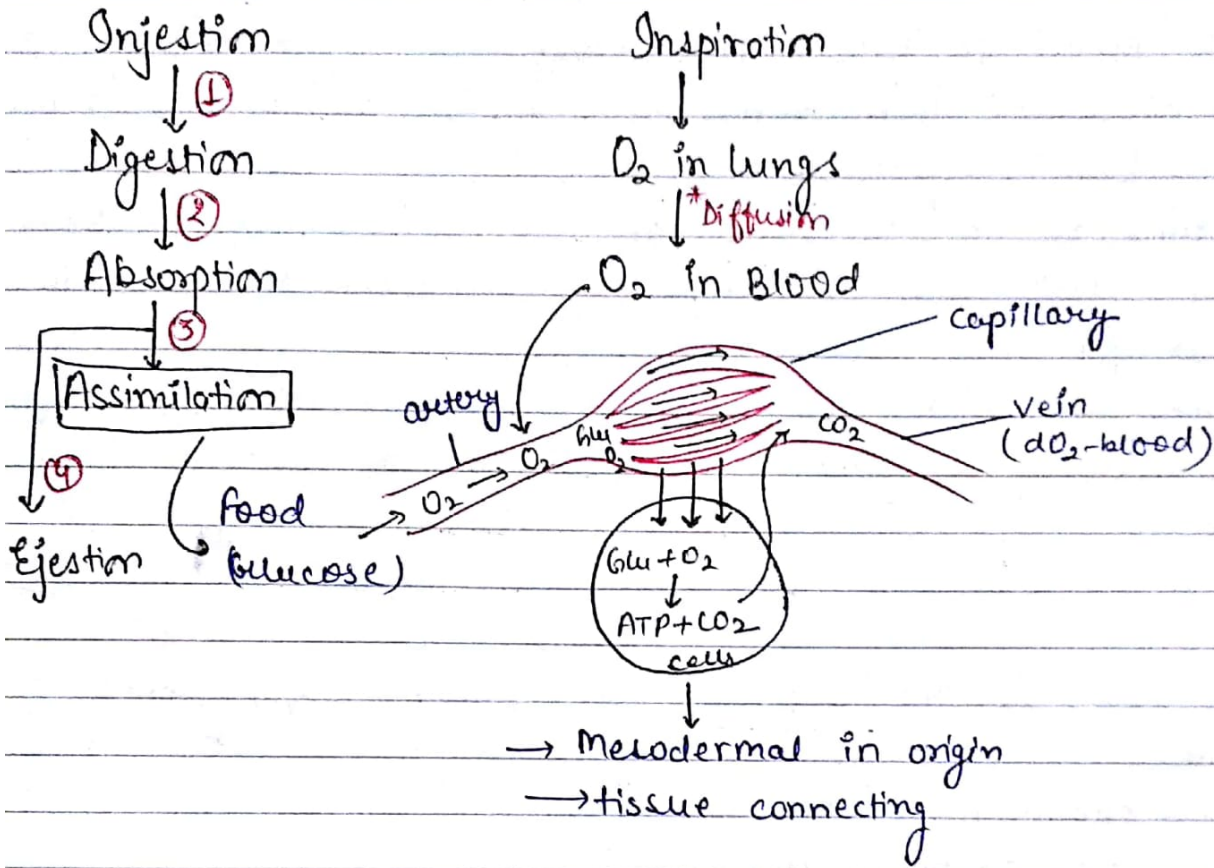 Injestion
①
Digestion
②
Absorption
③
Assimilation
④
Ejestion
food
(Glucose)
Inspiration
O₂ in lungs
*Diffusion
O₂ in Blood
capillary
artery
vein
(dO₂-blood)
O₂ → O₂
Glu
O₂
CO₂
Glu + O₂
ATP + CO₂
cells
→ Mesodermal in origin
→ tissue connecting